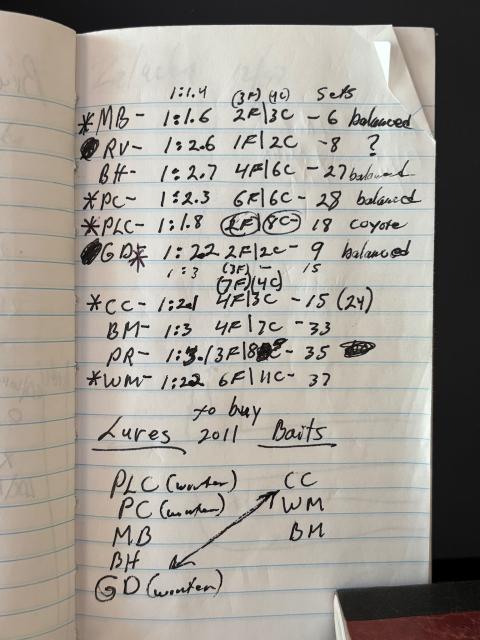 1:1.4 (3F) (4C) Sets
*MB- 1:1.6 2F|3C - 6 balanced
RV- 1:2.6 1F|2C - 8 ?
BH- 1:2.7 4F|6C - 27 balanced
*PC- 1:2.3 6F|6C - 28 balanced
*PLC- 1:1.8 2F| 8C- 18 coyote
GD* 1:2.2 2F|2C- 9 balanced
1:3 (3F) - 15
(7F)(4C)
*CC- 1:2.1 4F|3C - 15 (24)
BM- 1:3 4F|7C - 33
PR- 1:3.1 3F|8C- 35
*WM- 1:2.2 6F|11C- 37
to buy
Lures 2011 Baits
PLC (winter) CC
PC (winter) WM
MB BM
BH
GD (winter)